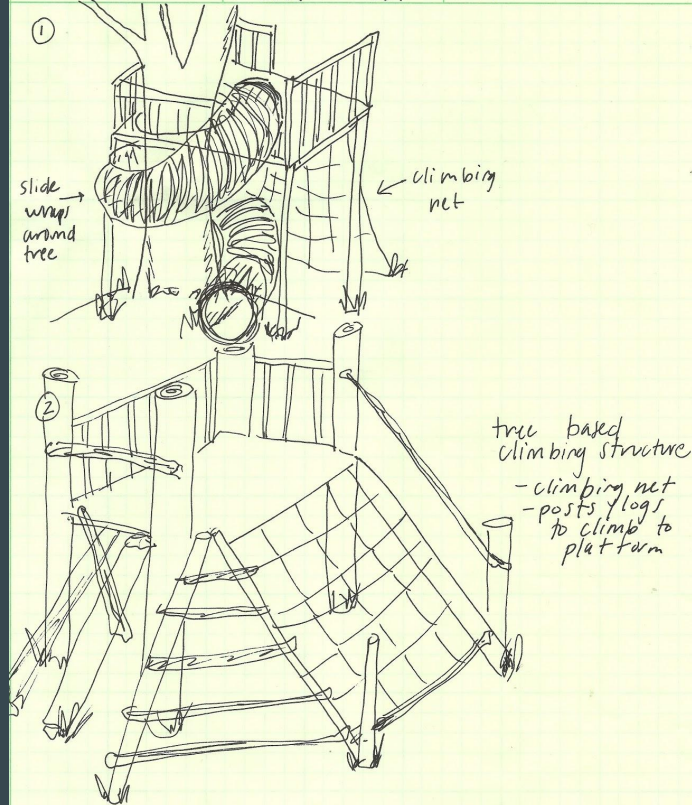 1
slide
wraps
around
tree
climbing
net
2
tree based
climbing structure
- climbing net
- posts / logs
to climb to
platform